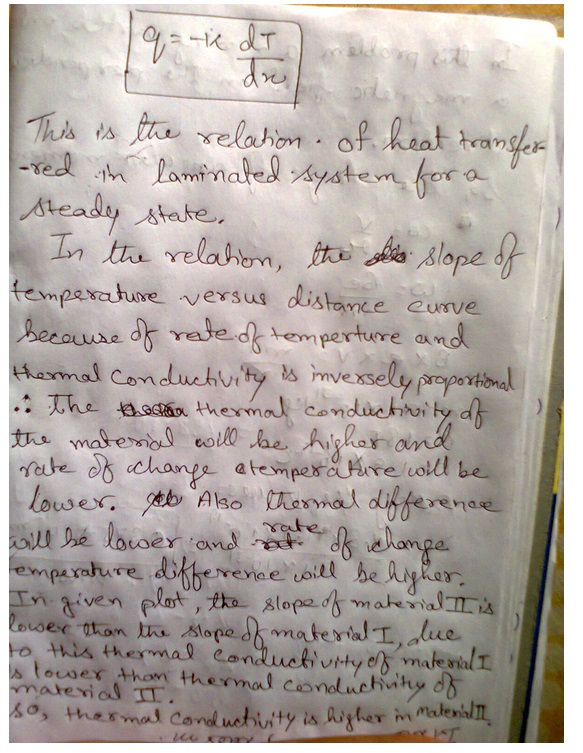 q = -k dT/dx
This is the relation. of heat transfer-
-red in laminated system for a
steady state.
In the relation, the slope of
temperature versus distance curve
because of rate of temperture and
thermal conductivity is inversely proportional
∴ The thermal conductivity of
the material will be higher and
rate of change temperature will be
lower. Also thermal difference
will be lower and rate of change
emperature difference will be higher.
In given plot, the slope of material II is
lower than the slope of material I, due
to this thermal conductivity of material I
s lower than thermal conductivity of
material II.
so, thermal conductivity is higher in material II.